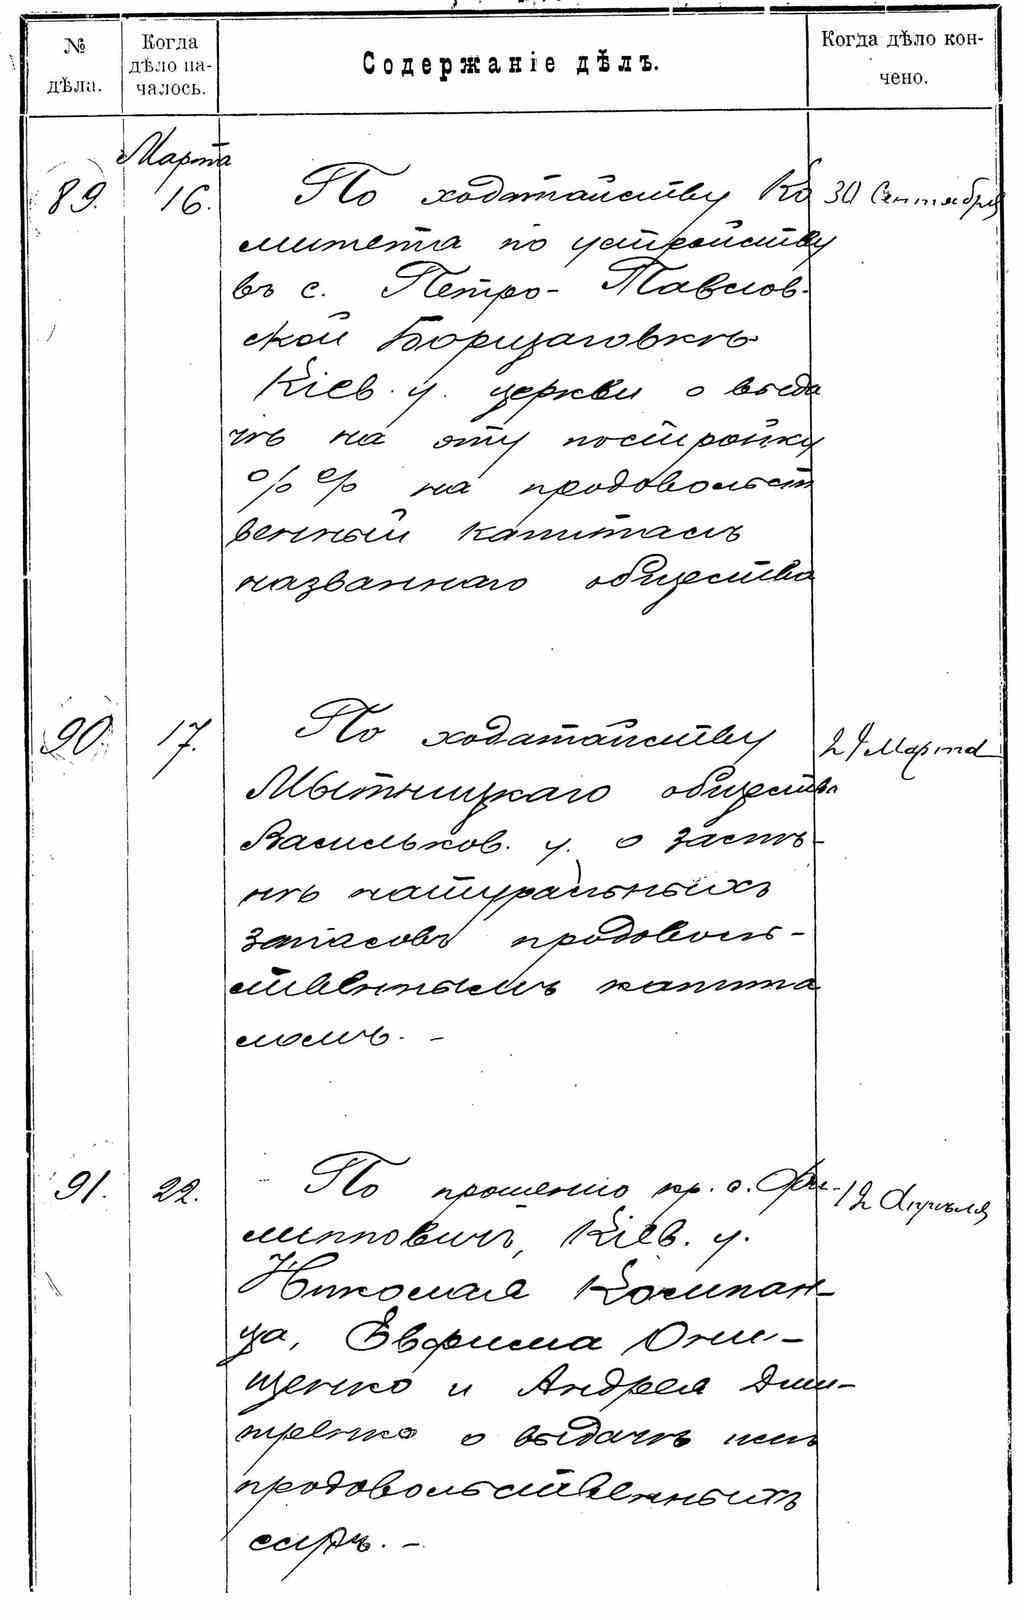 № дѣла.
Когда дѣло на-
чалось.
Содержаніе дѣлъ.
Когда дѣло кон-
чено.
Марта
89. 16. По ходатайству Ко 30 Сентября
митета по устройству
въ с. Петро- Павлов-
ской Борщаговкѣ
Кіев. у. церкви о выда
чѣ на эту постройку
%% на продовольст
венный капиталъ
названнаго общества
90. 17. По ходатайству 24 Марта
Мытницкаго общества
Васильков. у. о замѣ-
нѣ натуральныхъ
запасовъ продоволь-
ственнымъ капита
ломъ. -
91. 22. По прошенію кр. с. Фи- 12 Апрѣля
липповичъ, Кіев. у.
Николая Компан-
ца, Евфима Они-
щенко и Андрея Дми-
тренко о выдачѣ имъ
продовольственныхъ
ссудъ. -